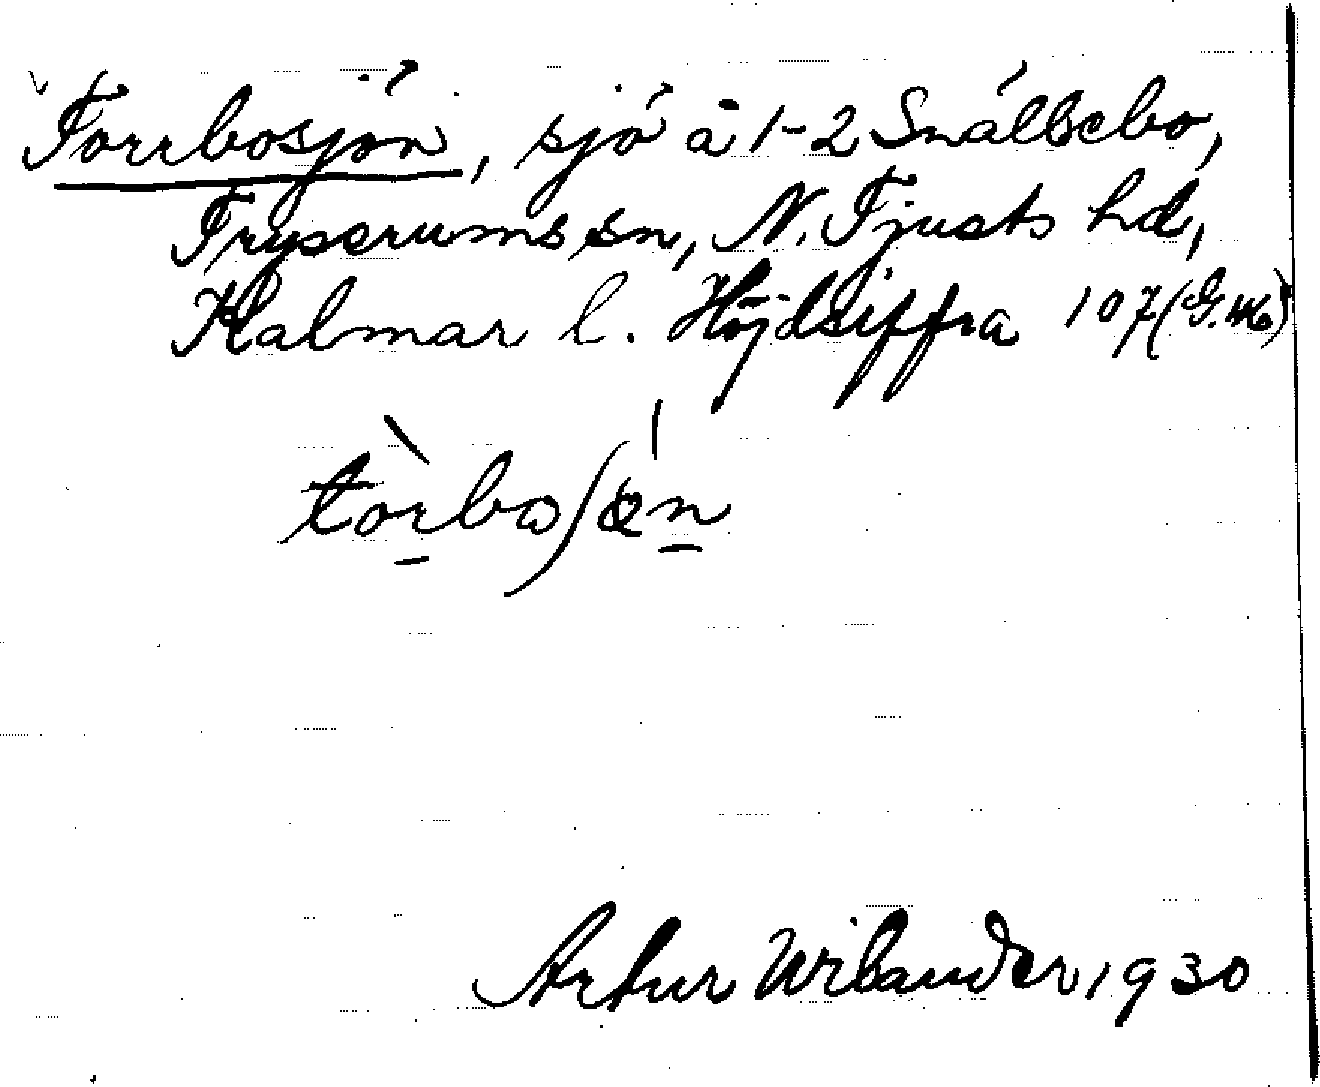 Torrbosjön, sjö å 1-2 Snällebo,
Tryserums sn, N. Tjusts hd,
Kalmar l. Höjdsiffra 107 (G.K.)
tòrboʃǿn
Artur Wilander 1930